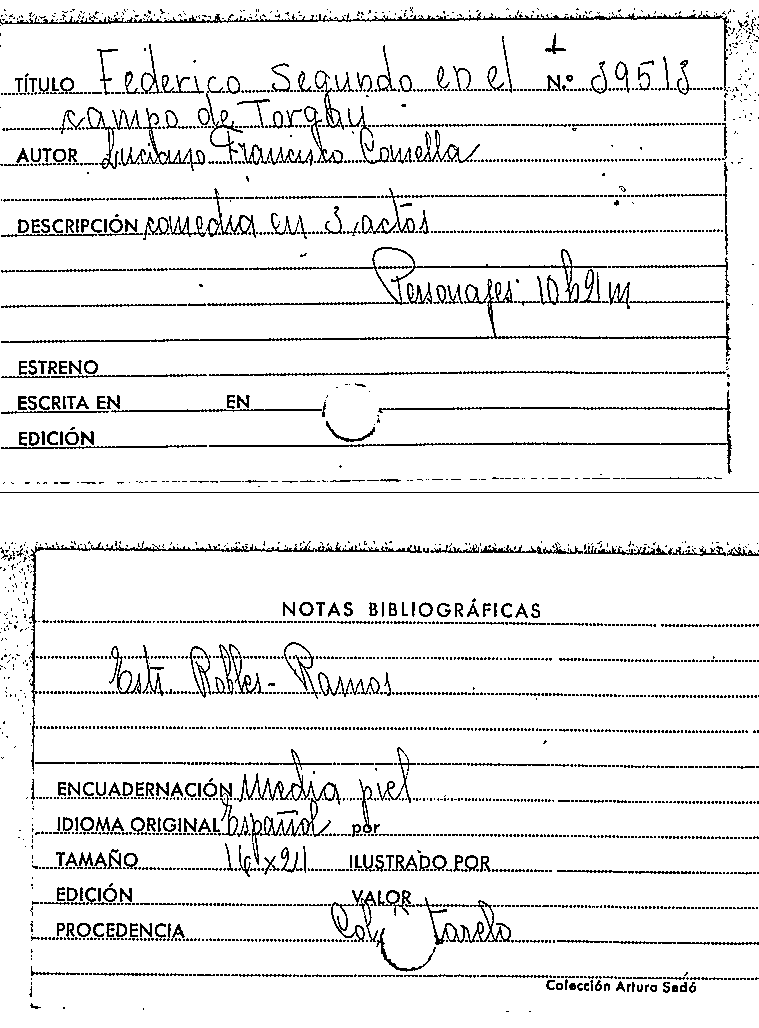 TÍTULO Federico Segundo en el N.º 39513
campo de Torgau
AUTOR Luciano Francisco Comella
DESCRIPCIÓN comedia en 3 actos
Personajes: 10 h 2 m
ESTRENO
ESCRITA EN EN
EDICIÓN
NOTAS BIBLIOGRÁFICAS
Estr. Robles-Ramos
ENCUADERNACIÓN Media piel
IDIOMA ORIGINAL Español por
TAMAÑO 16x21 ILUSTRADO POR
EDICIÓN VALOR
PROCEDENCIA Col.
Colección Arturo Sedó